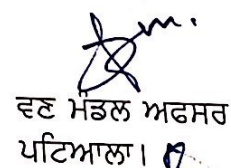 ਵਣ ਮੰਡਲ ਅਫਸਰ
ਪਟਿਆਲਾ।